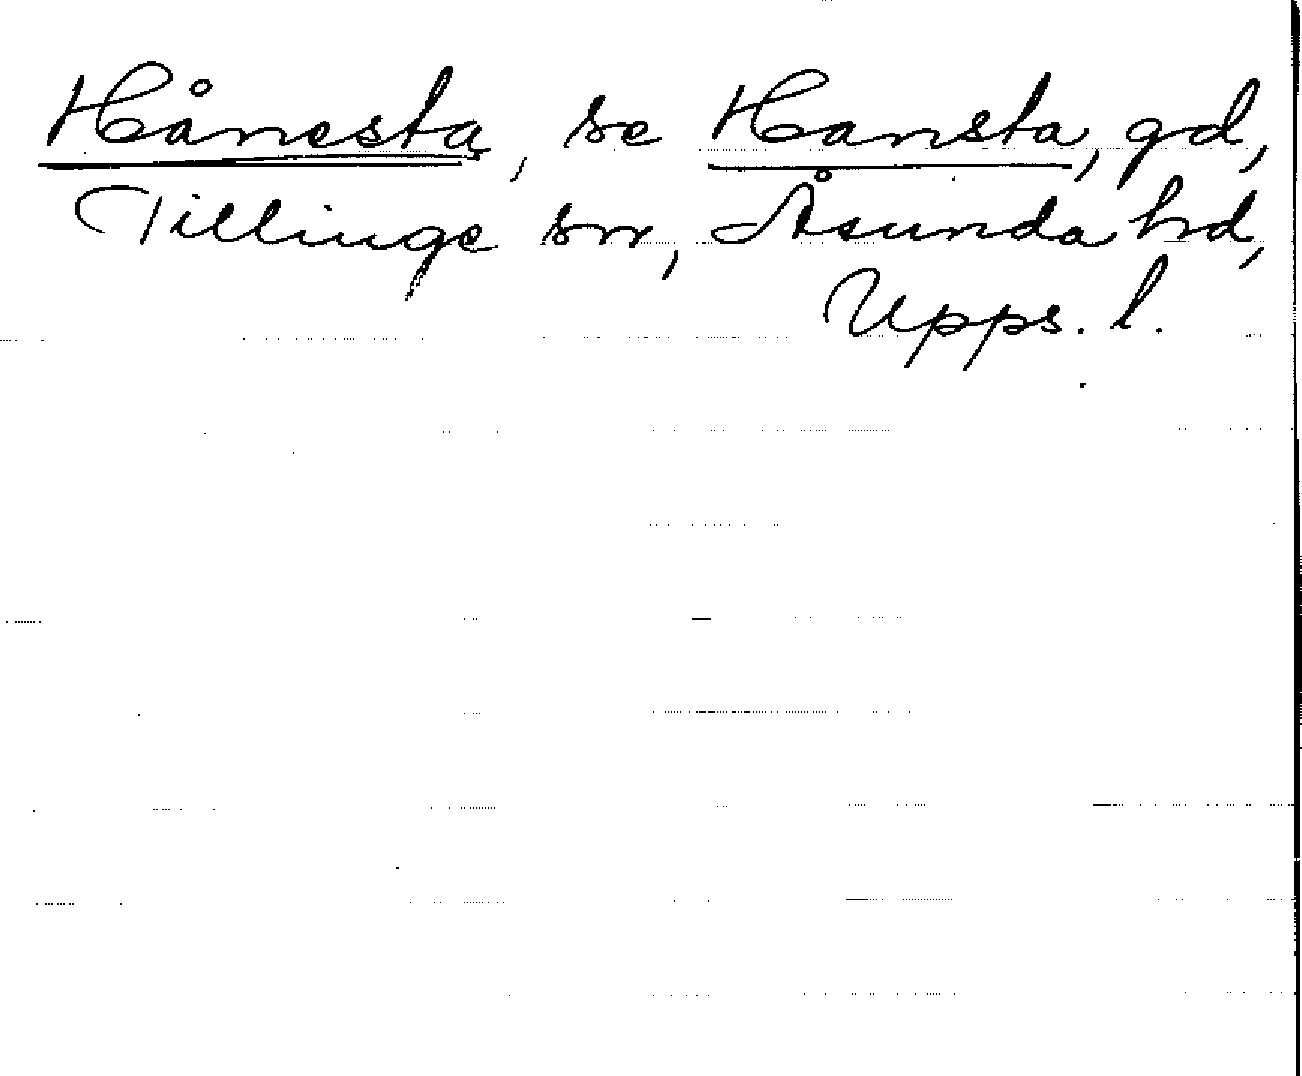 Hånesta, se Hansta, gd,
Tillinge sn, Åsunda hd,
Upps. l.